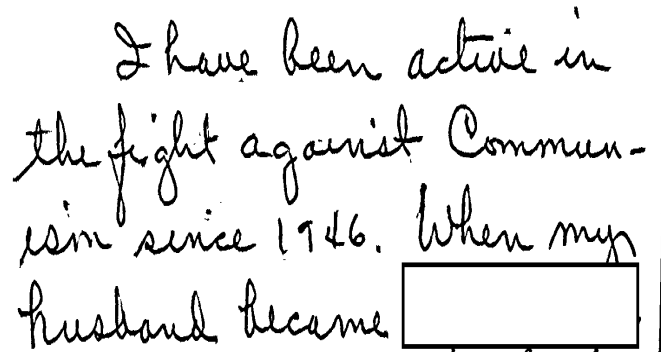 I have been active in
the fight against Commun-
ism since 1946. When my
husband became